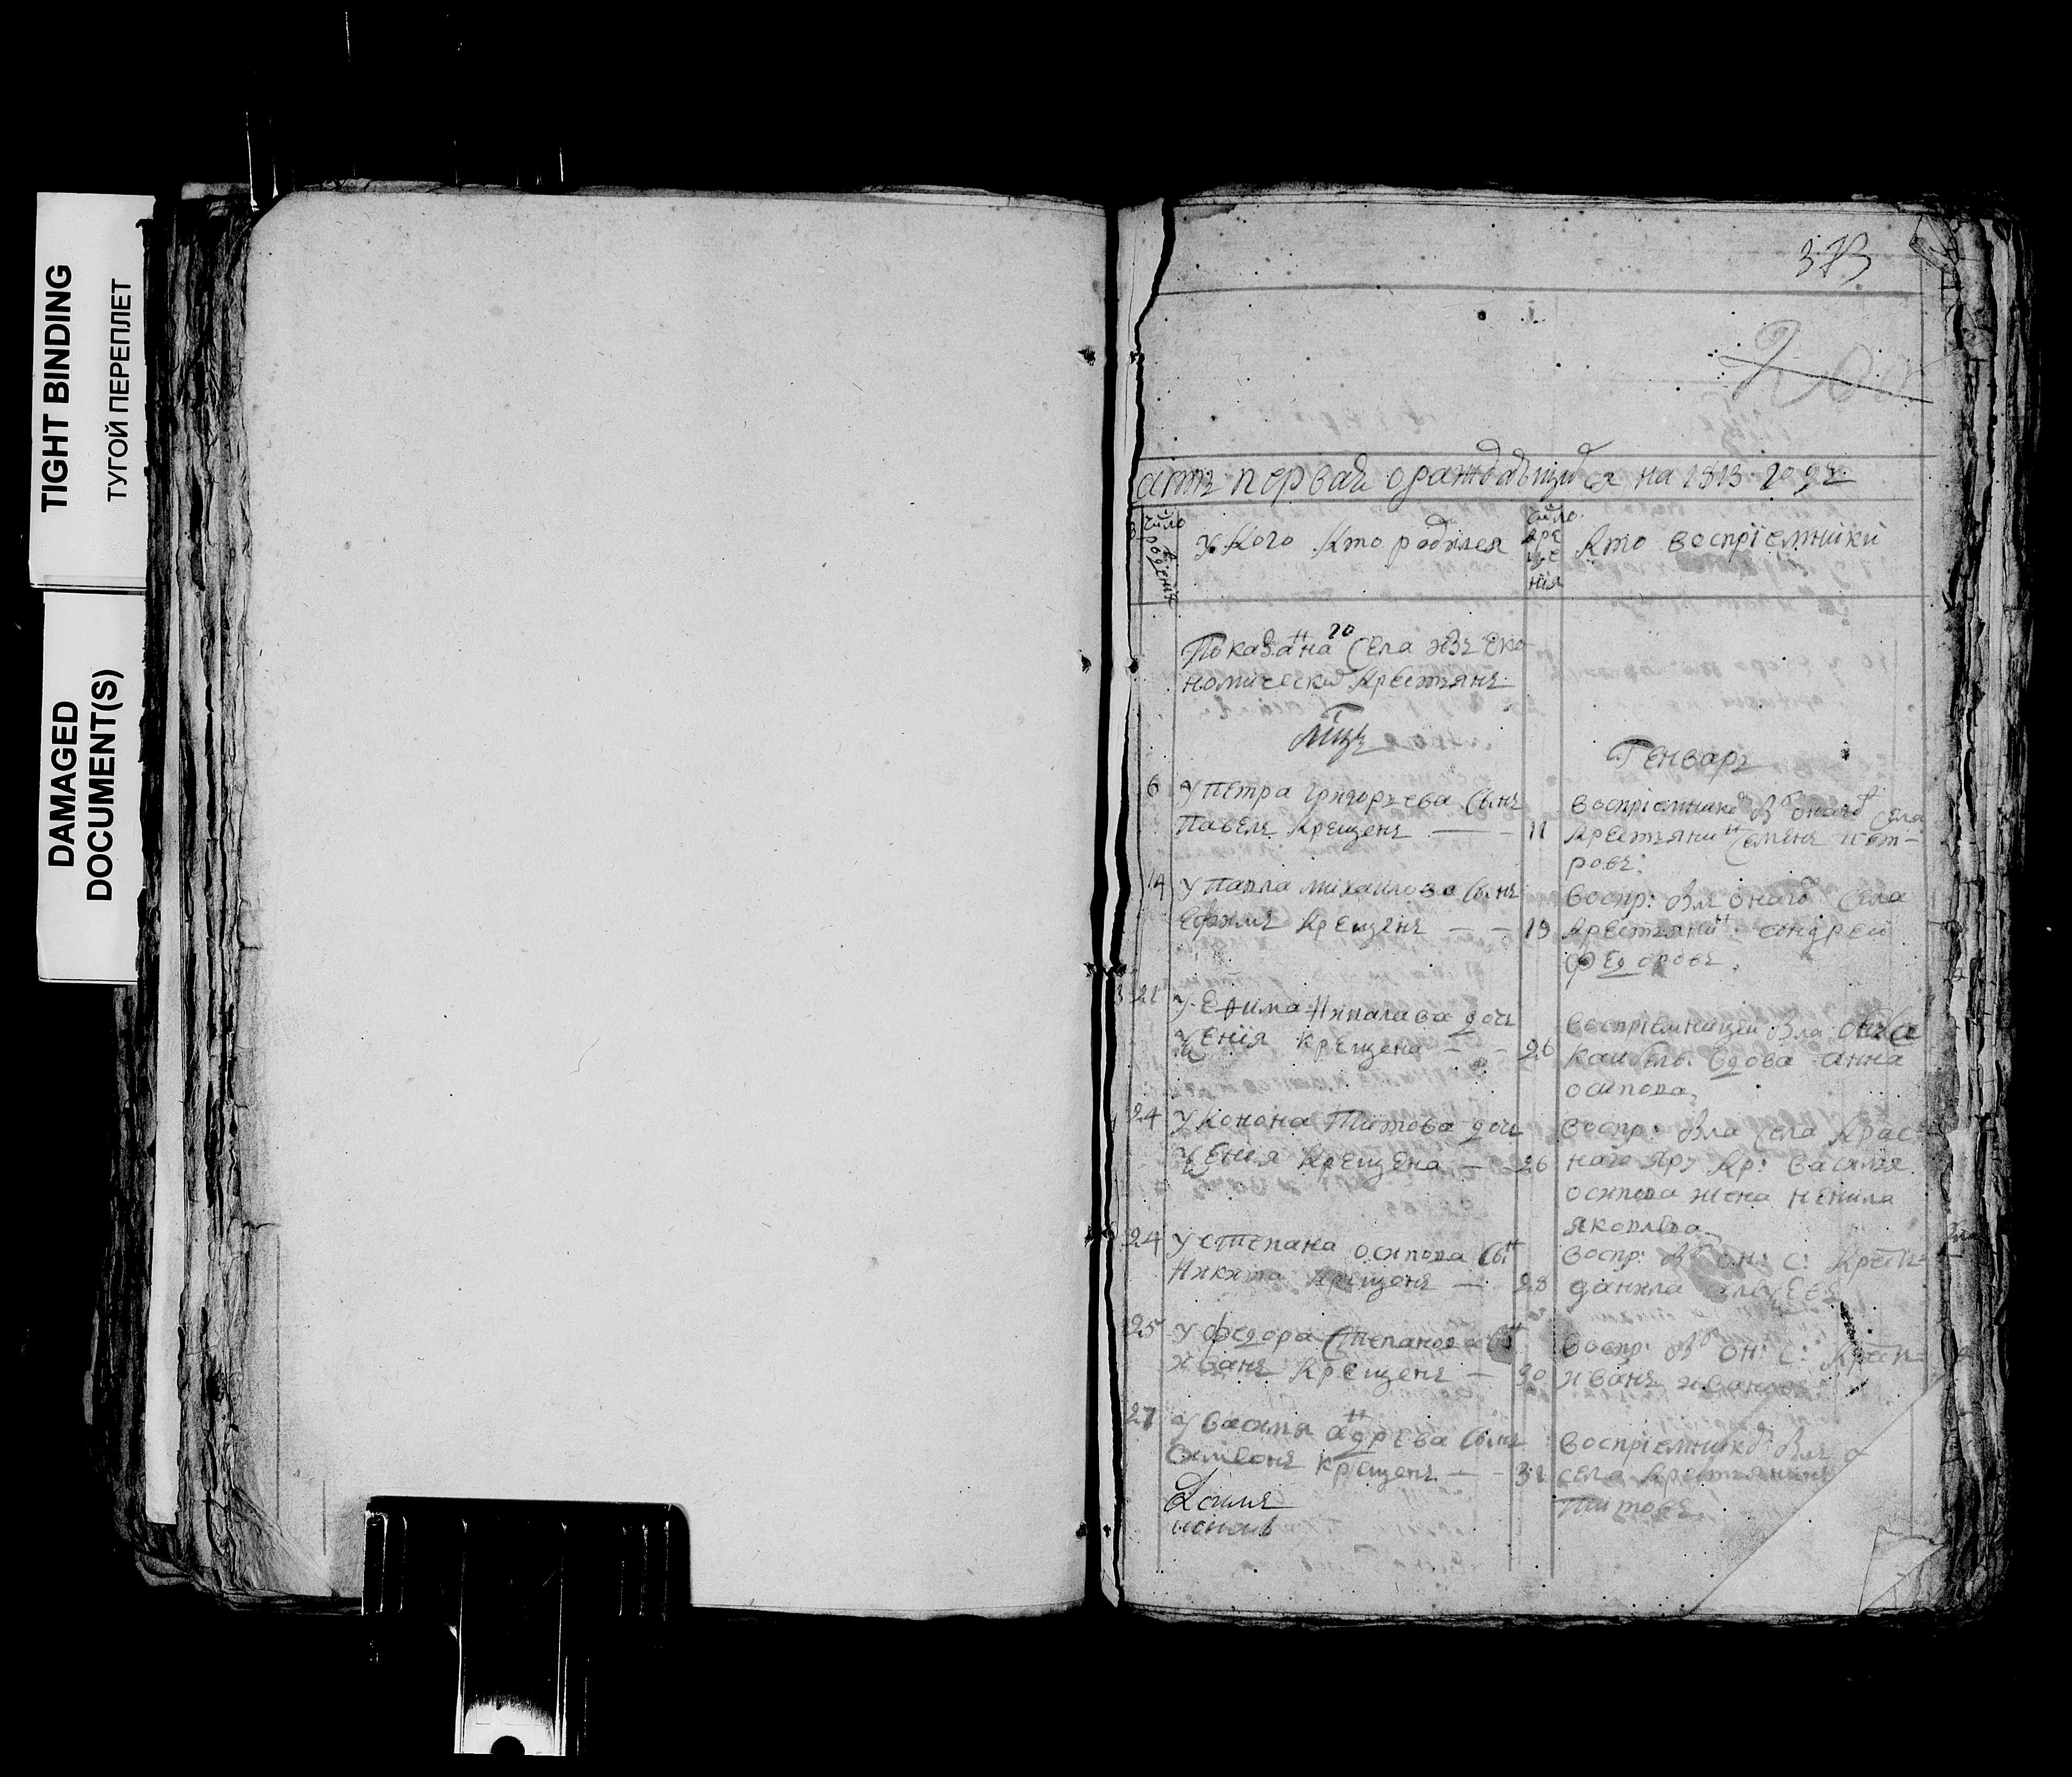 TIGHT BINDING
ТУГОЙ ПЕРЕПЛЕТ
DAMAGED
DOCUMENT(S)
373
асть первая о раждающихся на 1813 годъ
число рожденія
У Кого Кто родился
число кре ще нія
Кто воспріемники
Показаннаго Села изъ Еко
номическихъ Крестьянъ
Мцъ
Генварь
6 У Петра григорьева Сынъ
Павелъ Крещенъ — 11
воспріемникомъ былъ онаго Села
Крестьянинъ Семенъ пет-
ровъ:
14 У Павла михаилова Сынъ
Ефимъ Крещенъ — — 19
воспр: былъ онаго Села
Крестьянинъ андрей
федоровъ.
21 У Ефима дочь
Крещена — — 26
воспріемницей была
вдова анна
осипова,
24 У Конона Титова дочь
Крещена — 26
воспр: была Села Крас-
наго Яру Кр: василія
осипова жена ненила
яковлева
24 У степана осипова Сынъ
Никита Крещенъ — 28
воспр: былъ он: с: Крест-
данила
25 У федора Степанова Сынъ
иванъ Крещенъ — 30
воспр: былъ он: с: Крест-
иванъ ивановъ
27 У василя андрева Сынъ
Симеонъ крещенъ — — 31
воспріемникомъ былъ о
села Крестьянинъ
Титовъ